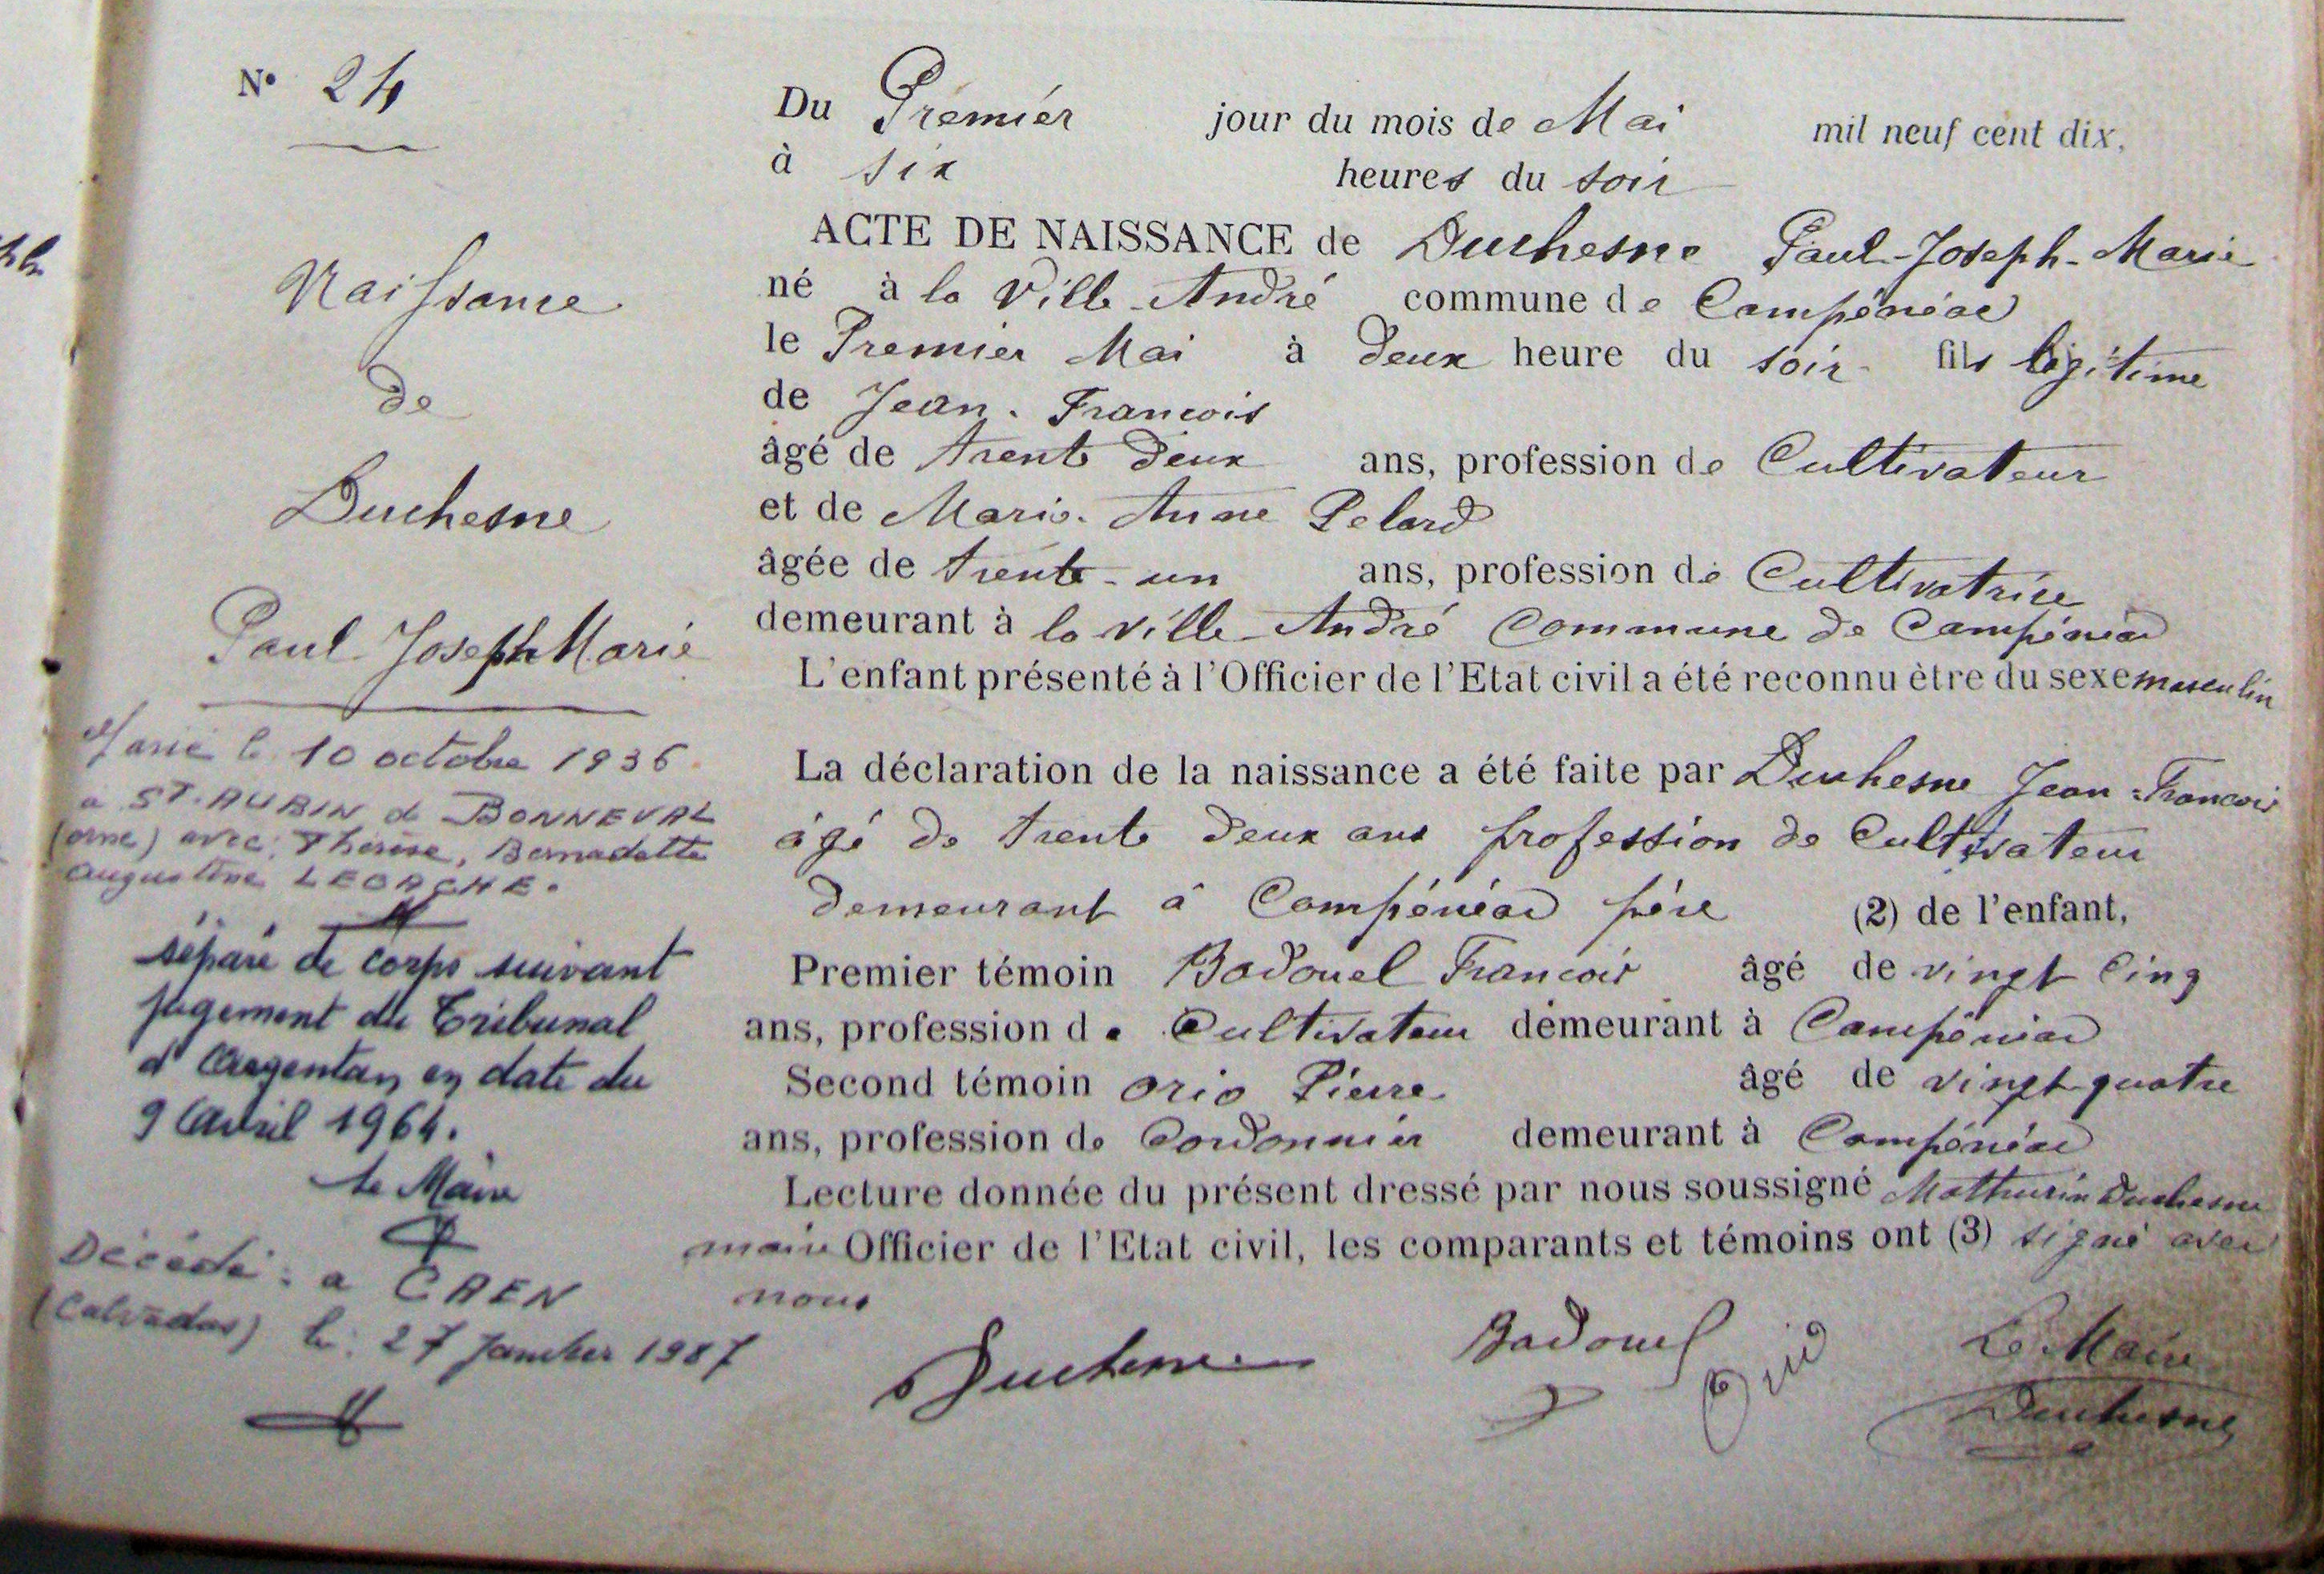 N° 24
Naissance
de
Duchesne
Paul-Joseph Marie
Marié le 10 octobre 1936
à ST. AUBIN de BONNEVAL
(orne) avec: Thérèse, Bernadette
Augustine
séparé de corps suivant
jugement du Tribunal
d'Argentan en date du
9 Avril 1964.
Le Maire
Décédé: a CAEN
(Calvados) le: 27 Janvier 1987
Du Premier jour du mois de Mai mil neuf cent dix,
à six heures du soir
ACTE DE NAISSANCE de Duchesne Paul-Joseph-Marie
né à la Ville-André commune de Campénéac
le Premier Mai à deux heure du soir fils légitime
de Jean-Francois
âgé de trente deux ans, profession de Cultivateur
et de Marie-Anne Pelard
âgée de trente-un ans, profession de Cultivatrice
demeurant à la ville-André Commune de Campénéac
L'enfant présenté à l'Officier de l'Etat civil a été reconnu être du sexe masculin
La déclaration de la naissance a été faite par Duchesne Jean-Francois
âgé de trente deux ans profession de Cultivateur
demeurant à Campénéac père (2) de l'enfant,
Premier témoin Badouel Francois âgé de vingt Cinq
ans, profession de Cultivateur demeurant à Campénéac
Second témoin Orio Pierre âgé de vingt-quatre
ans, profession de Cordonnier demeurant à Campénéac
Lecture donnée du présent dressé par nous soussigné Mathurin Duchesne
maire Officier de l'Etat civil, les comparants et témoins ont (3) signé avec
nous
Duchesne Badouel Orio Le Maire
Duchesne